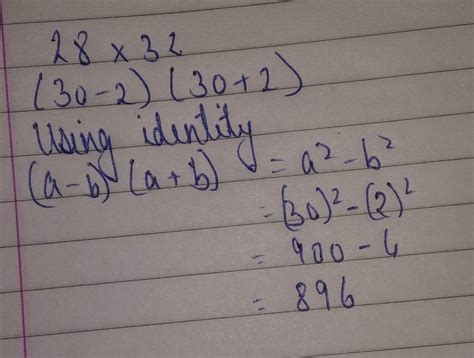 28 × 32
(30-2) (30+2)
Using identity
(a-b) (a+b) = a² - b²
= (30)² - (2)²
= 900 - 4
= 896